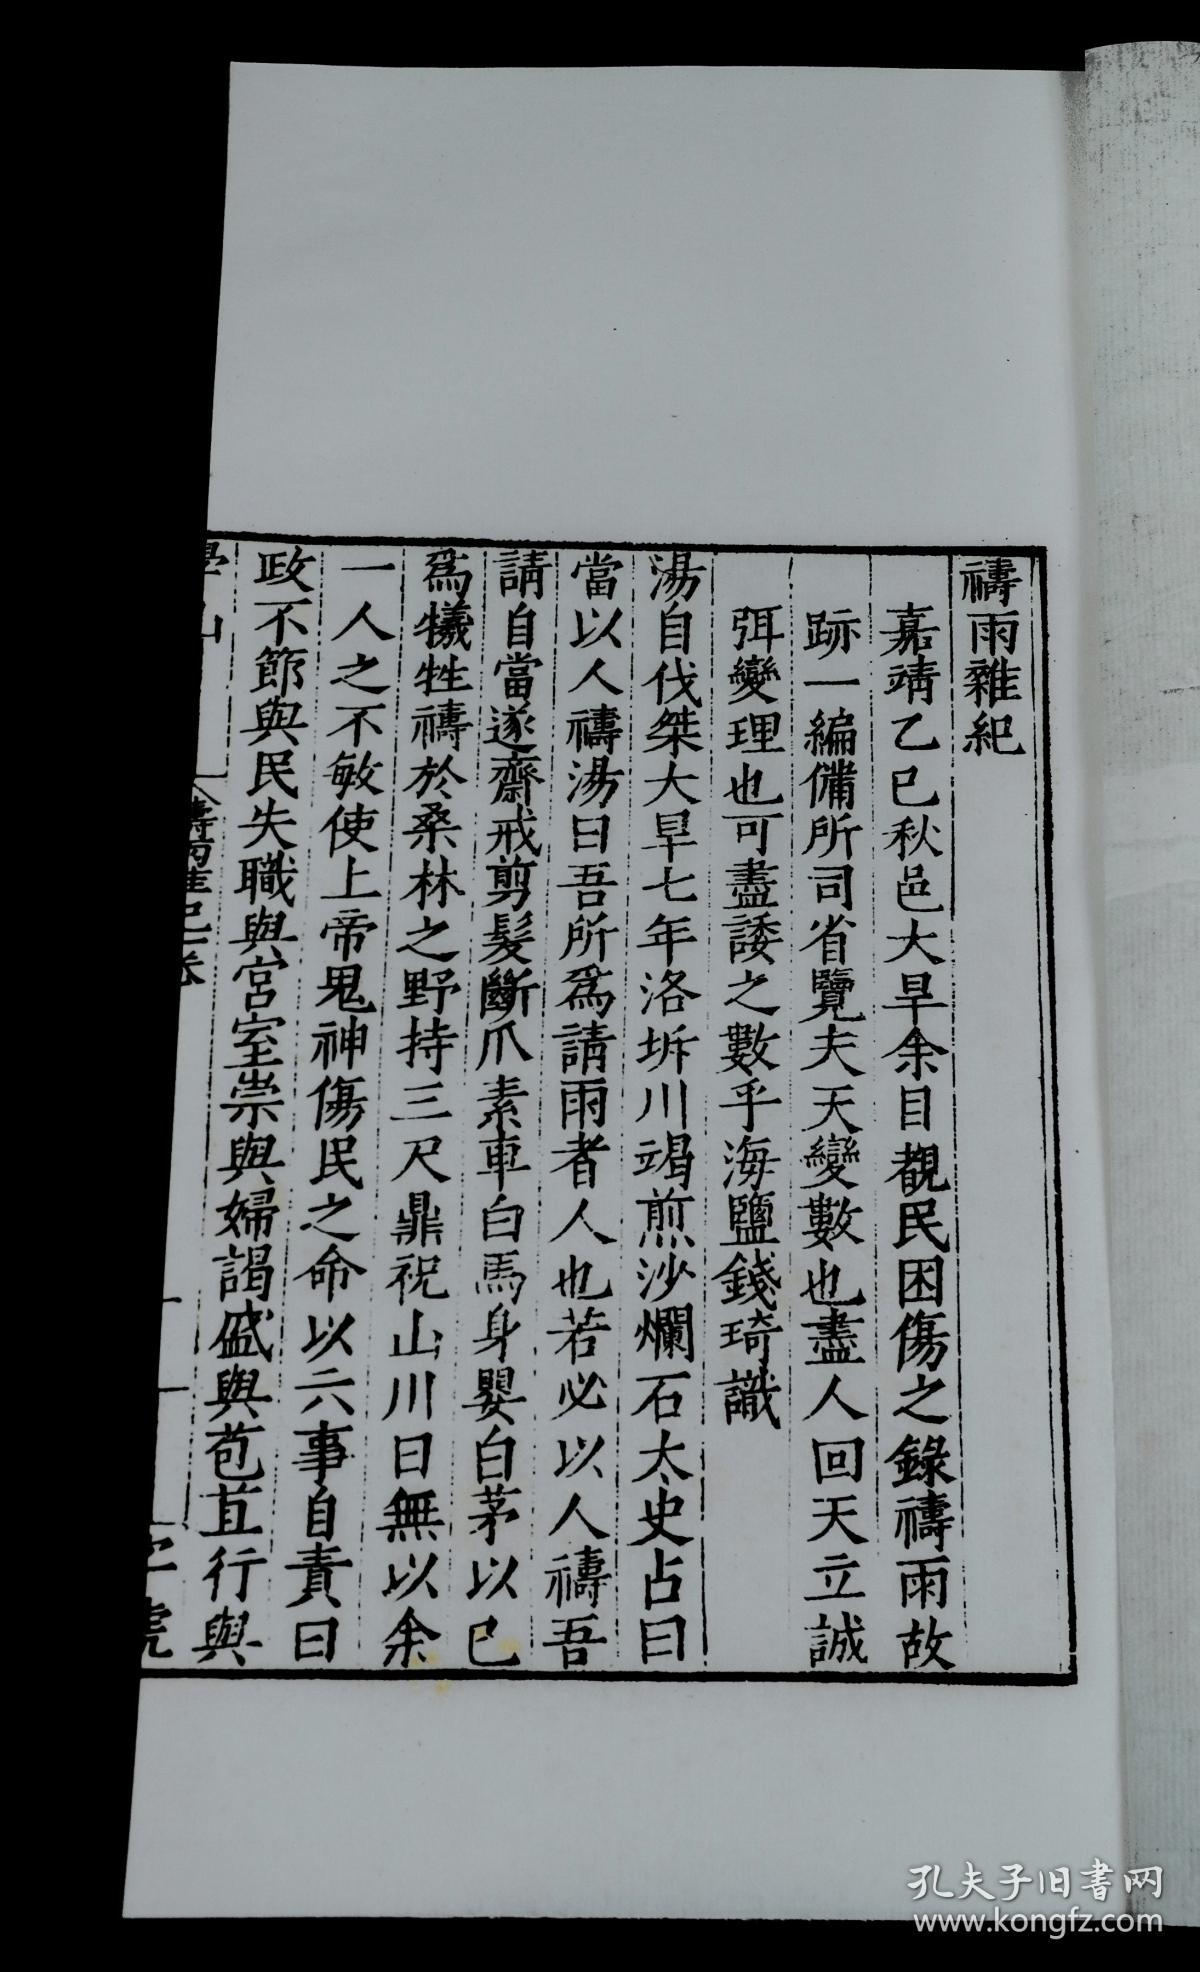 禱雨雜紀
嘉靖乙巳秋邑大旱余目覩民困傷之錄禱雨故
跡一編備所司省覽夫天變數也盡人回天立誠
弭變理也可盡諉之數乎海鹽錢琦識
湯自伐桀大旱七年洛坼川竭煎沙爛石太史占曰
當以人禱湯曰吾所爲請雨者人也若必以人禱吾
請自當遂齋戒剪髮斷爪素車白馬身嬰白茅以己
爲犧牲禱於桑林之野持三尺鼎祝山川曰無以余
一人之不敏使上帝鬼神傷民之命以六事自責曰
政不節與民失職與宮室崇與婦謁盛與苞苴行與
孔夫子旧書网
www.kongfz.com